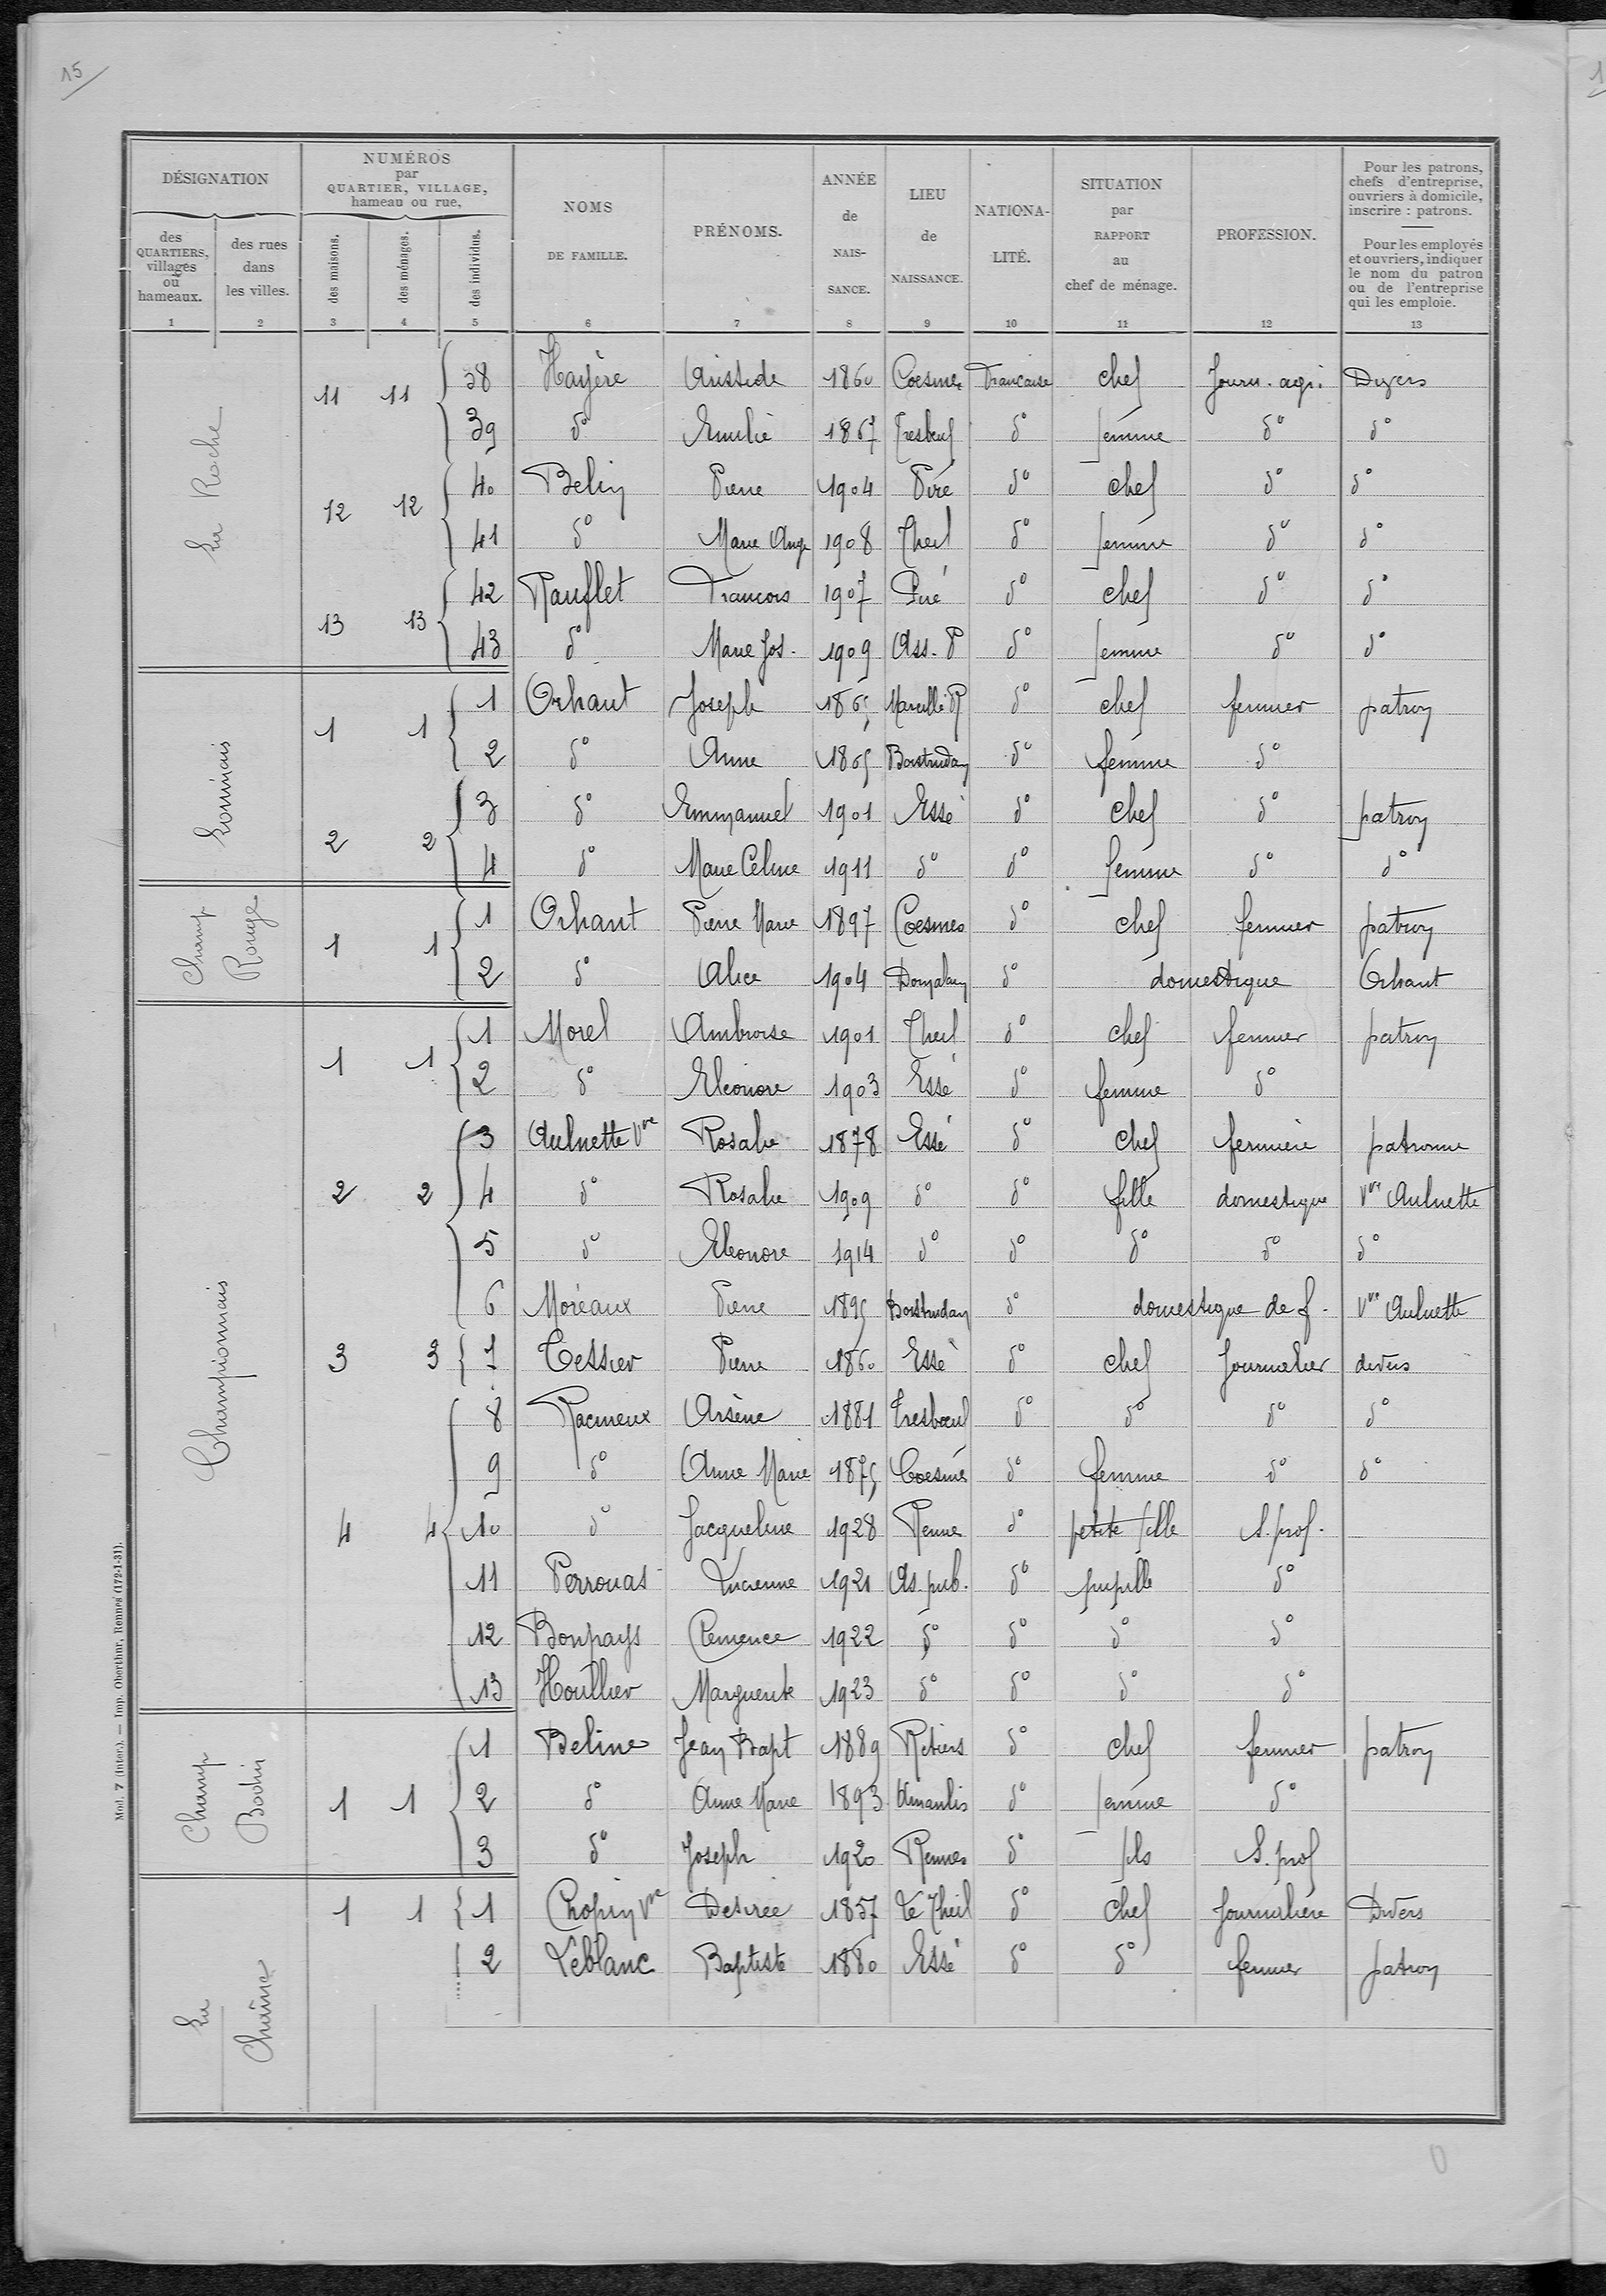 15
DÉSIGNATION
des QUARTIERS, villages ou hameaux.
des rues dans les villes.
NUMÉROS par QUARTIER, VILLAGE, hameau ou rue.
des maisons.
des ménages.
des individus.
NOMS DE FAMILLE.
PRÉNOMS.
ANNÉE de NAIS-SANCE.
LIEU de NAISSANCE.
NATIONA-LITÉ.
SITUATION par RAPPORT au chef de ménage.
PROFESSION.
Pour les patrons, chefs d'entreprise, ouvriers à domicile, inscrire : patrons.
Pour les employés et ouvriers, indiquer le nom du patron ou de l'entreprise qui les emploie.
1 2 3 4 5 6 7 8 9 10 11 12 13
La Roche
11 11 38 Hayère Aristide 1860 Coesmes Française chef Journ. agri. Divers
39 do Emilie 1867 Tresbœuf do femme do do
12 12 40 Belin Pierre 1904 Piré do chef do do
41 do Marie Ange 1908 Theil do femme do do
13 13 42 Rauflet Francois 1907 Piré do chef do do
43 do Marie Jos. 1909 Ass. P do femme do do
Lominais
1 1 1 Orhant Joseph 1865 Marcillé R do chef fermier patron
2 do Anne 1865 Boistrudan do femme do
2 2 3 do Emmanuel 1901 Essé do chef do patron
4 do Marie Céline 1911 do do femme do do
Champ Rouge
1 1 1 Orhant Pierre Marie 1897 Coesmes do chef fermier patron
2 do Alice 1904 Domalain do domestique Orhant
Championnais
1 1 1 Morel Ambroise 1901 Theil do chef fermier patron
2 do Eléonore 1903 Essé do femme do
2 2 3 Aulnette Vve Rosalie 1878 Essé do chef fermière patronne
4 do Rosalie 1909 do do fille domestique Vve Aulnette
5 do Eléonore 1914 do do do do do
6 Moreaux Pierre 1895 Boistrudan do domestique de f. Vve Aulnette
3 3 7 Tessier Pierre 1860 Essé do chef Journalier divers
4 4 8 Racineux Arsène 1881 Tresbœuf do do do do
9 do Anne Marie 1875 Coesmes do femme do do
10 do Jacqueline 1928 Renne do petite fille S. prof.
11 Perrouas Lucienne 1921 As. pub. do pupille do
12 Bonpays Clemence 1922 do do do do
13 Houllier Marguerite 1923 do do do do
Champ Bodin
1 1 1 Beline Jean Bapt 1889 Retiers do chef fermier patron
2 do Anne Marie 1893 Amanlis do femme do
3 do Joseph 1920 Rennes do fils S. prof
La Chaîne
1 1 1 Chopin Vve Désirée 1857 Le Theil do chef Journalière Divers
2 Leblanc Baptiste 1880 Essé do do fermier patron
Mod. 7 (Inter.). — Imp. Oberthur, Rennes (172-1-31).